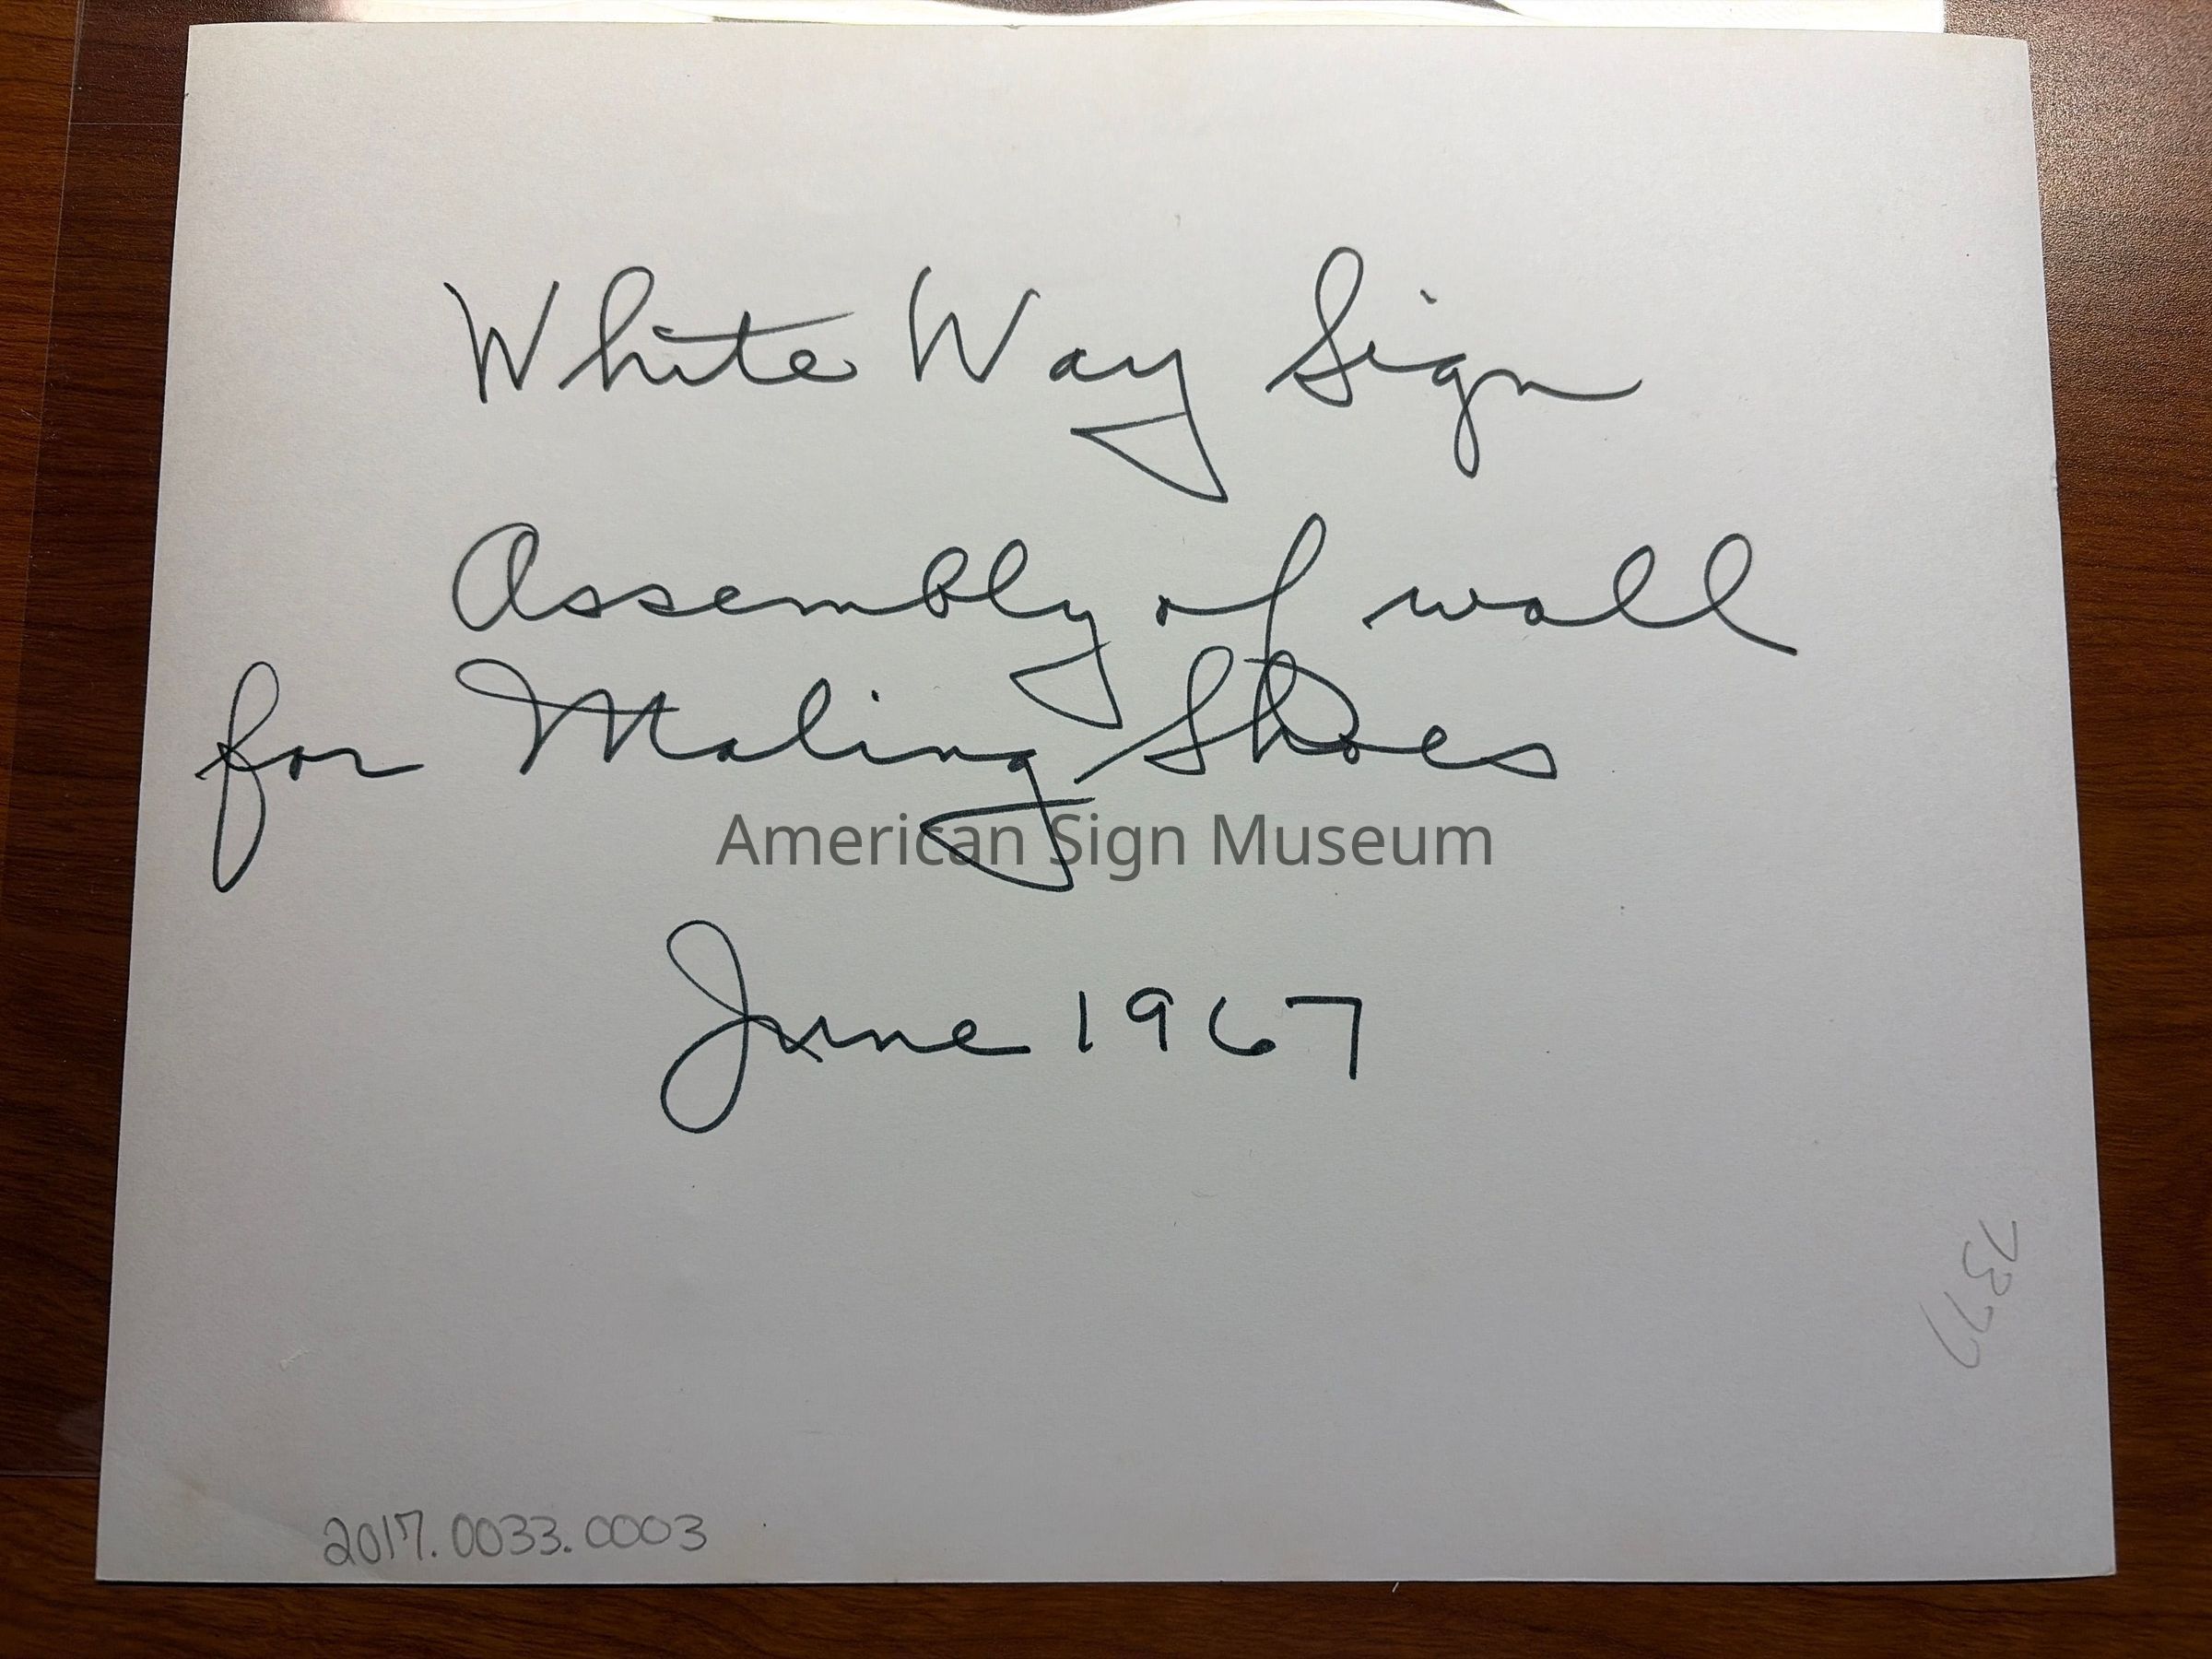 White Way Sign
Assembly of wall
for Maling Shoes
American Sign Museum
June 1967
7377
2017.0033.0003